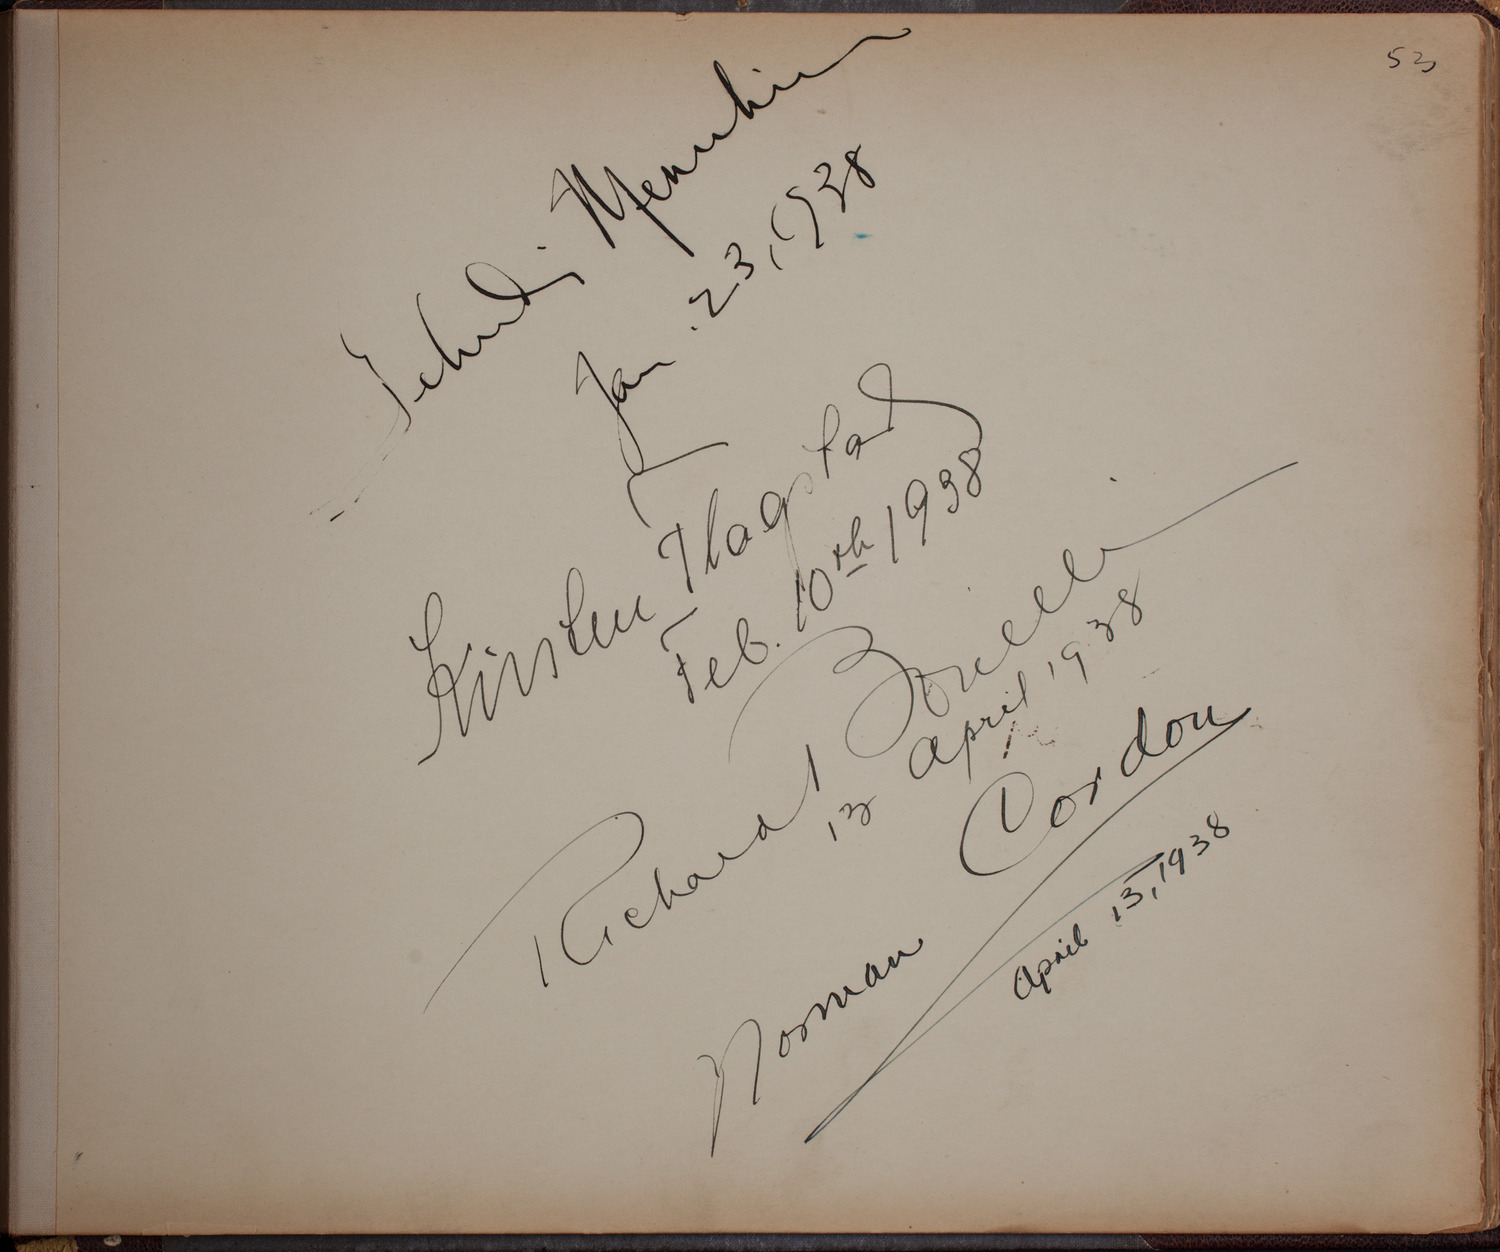 53
Yehudi Menuhin
Jan. 23, 1938
Kirsten Flagstad
Feb. 10th 1938
Richard Bonelli
13 April 1938
Norman Cordon
April 13, 1938